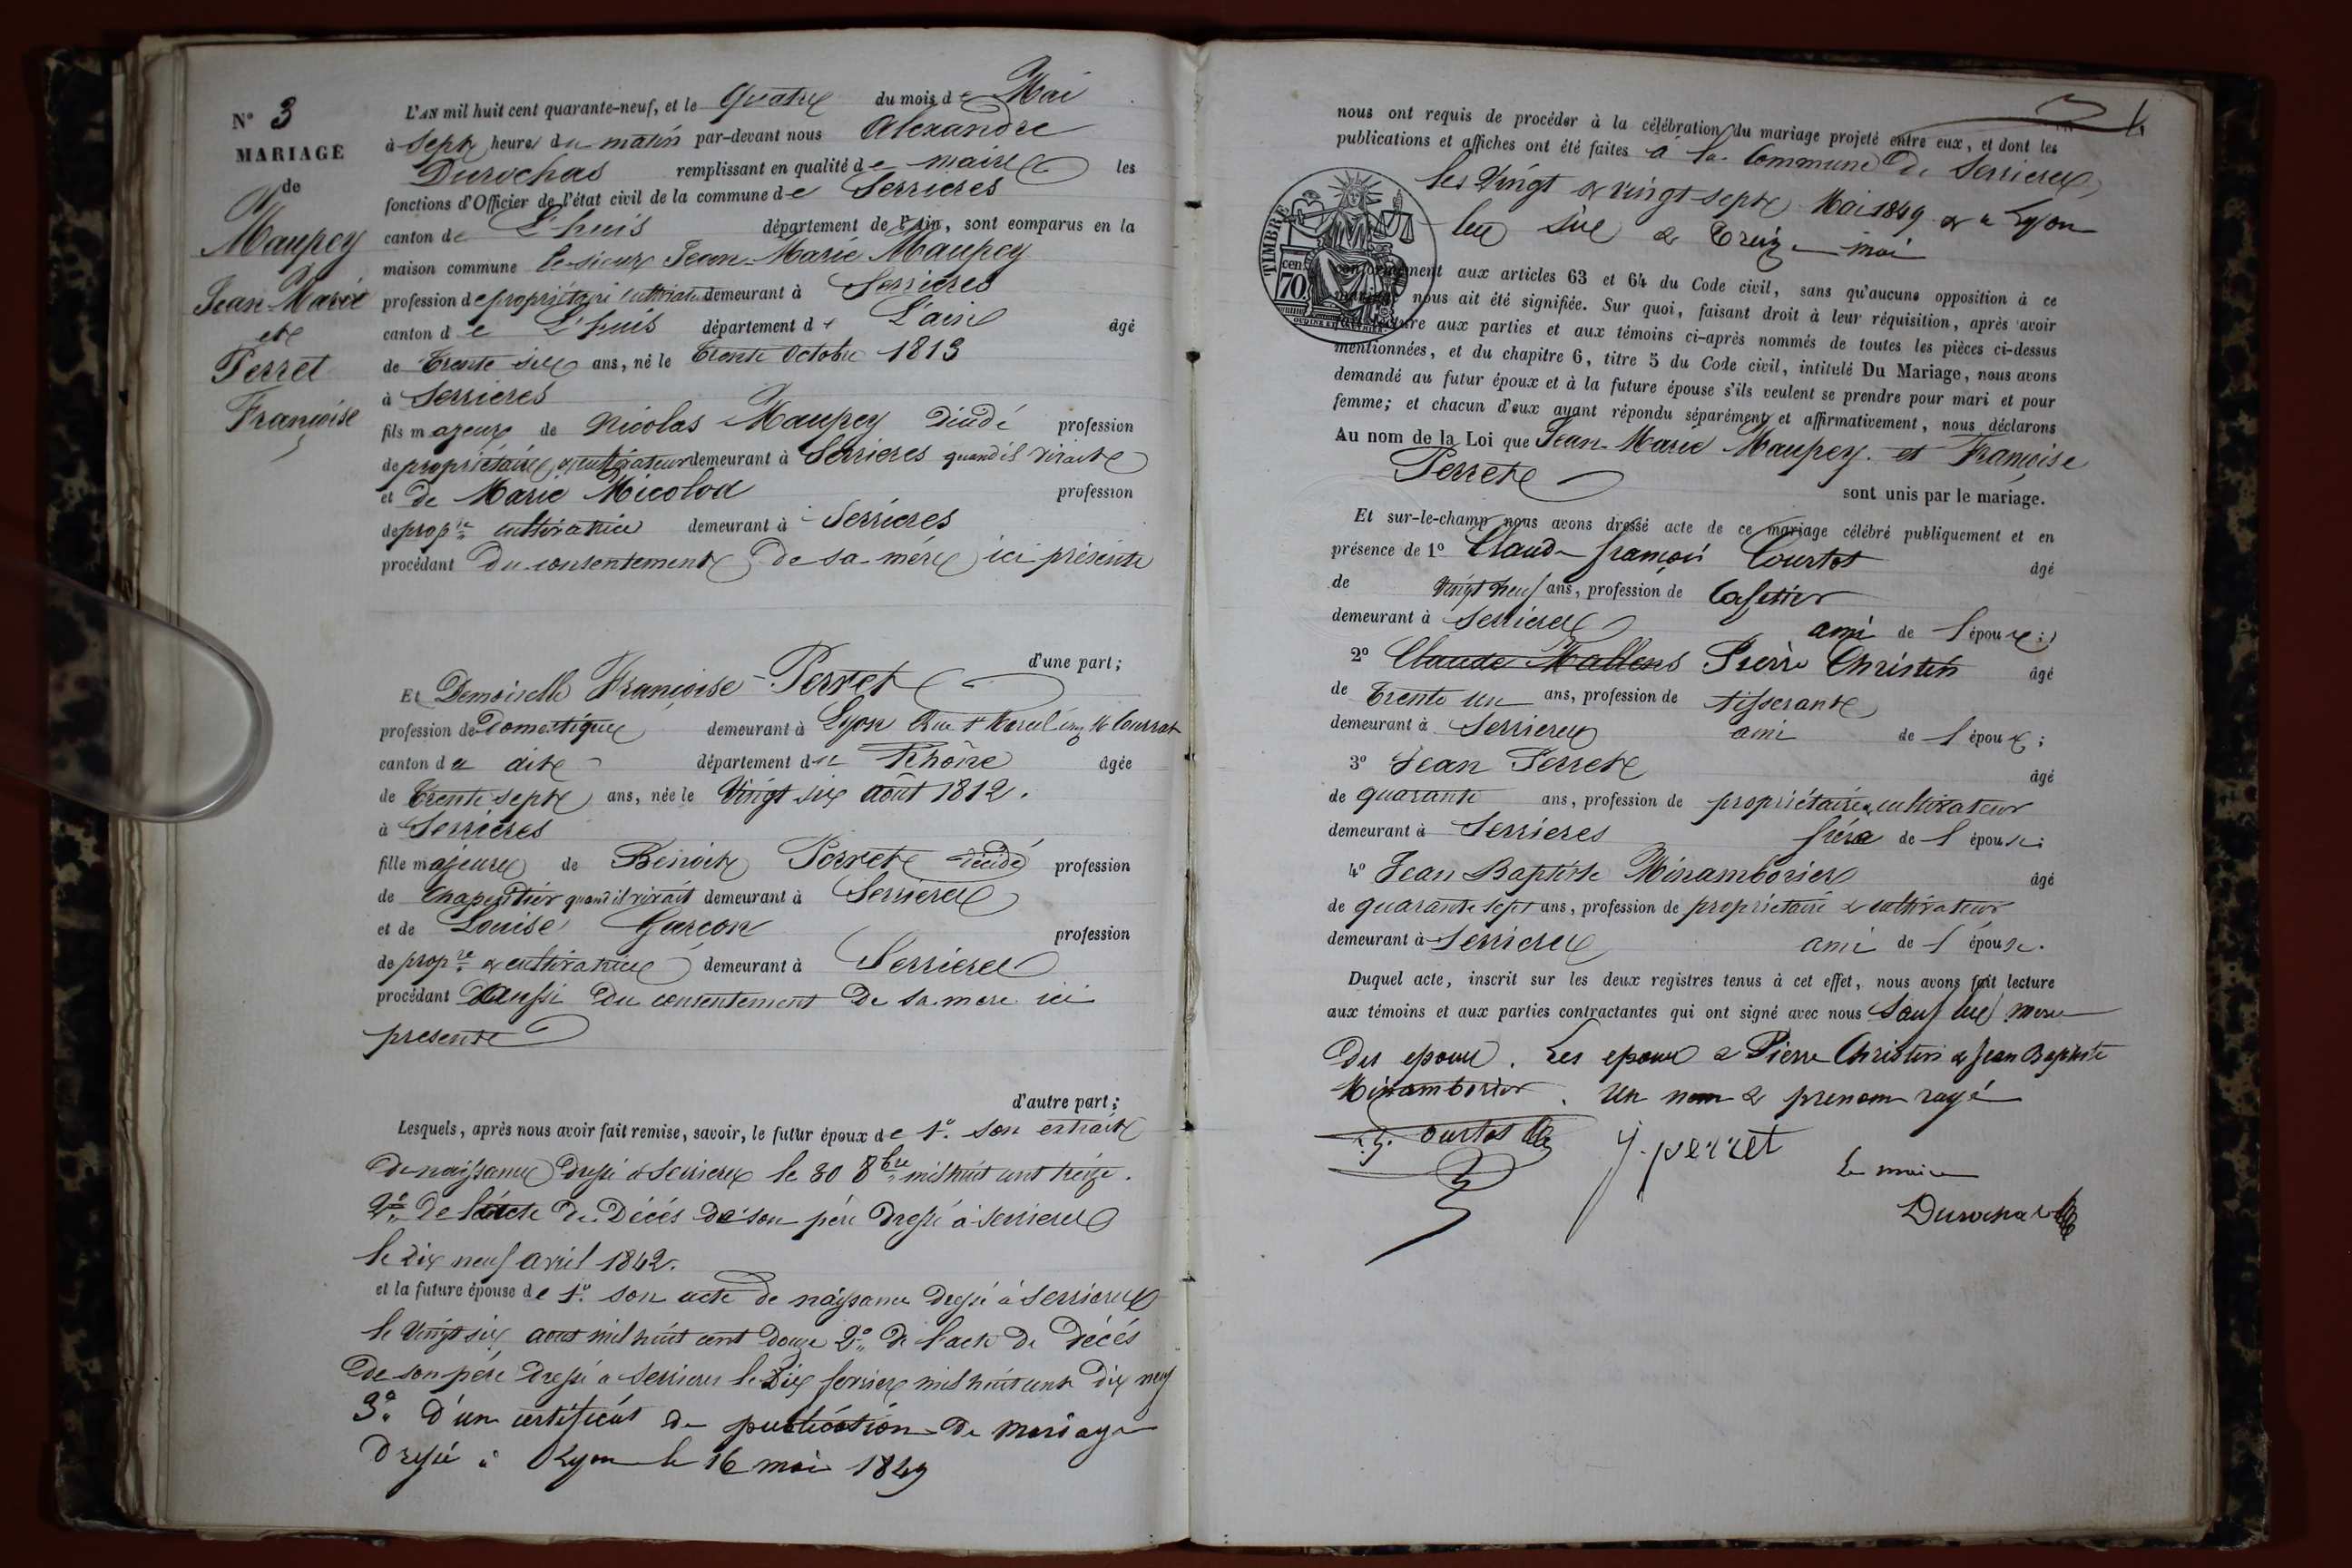 N° 3
MARIAGE
de
Maupey
Jean-Marie
et
Perret
Françoise
L'AN mil huit cent quarante-neuf, et le Quatre du mois de Mai
à sept heures du matin par-devant nous Alexandre
Durochas remplissant en qualité de maire les
fonctions d'Officier de l'état civil de la commune de Serrieres
canton de L'huis département de l'Ain, sont comparus en la
maison commune le sieur Jean-Marie Maupey
profession de propriétaire cultivateur demeurant à Serrieres
canton de L'huis département de L'ain âgé
de Trente six ans, né le trente Octobre 1813
à Serrieres
fils majeur de Nicolas Maupey décédé profession
de propriétaire & cultivateur demeurant à Serrieres quand il vivait
et de Marie Micolod profession
de prop.re cultivatrice demeurant à Serrieres
procédant du consentement de sa mére ici présente
d'une part;
Et Demoiselle Françoise Perret
profession de Domestique demeurant à Lyon Rue St Marcel
canton du dit département du Rhône âgée
de Trente sept ans, née le Vingt six août 1812.
à Serrieres
fille majeure de Benoit Perret décédé profession
de Chapentier quand il vivait demeurant à Serrieres
et de Louise Garcon profession
de prop.re & cultivatrice demeurant à Serrieres
procédant aussi du consentement de sa mere ici
presente
d'autre part;
Lesquels, après nous avoir fait remise, savoir, le futur époux de 1° son extrait
de naissance dressé à Serrieres le 30 8bre mil huit cent treize.
2° De l'acte de Décés de son pére dressé à Serrieres
le dix neuf avril 1842.
et la future épouse de 1° son acte de naissance dressé à Serrieres
le Vingt six aout mil huit cent douze 2° de l'acte de décés
de son pére dressé a Serrieres le dix fevrier mil huit cent dix neuf
3° d'un certificat de publication de mariage
dressé à Lyon le 16 mai 1849
nous ont requis de procéder à la célébration du mariage projeté entre eux, et dont les
publications et affiches ont été faites à la Commune de Serrieres
les Vingt & vingt sept Mai 1849 & a Lyon
les six & Treize mai
TIMBRE
cen.
70
conformément aux articles 63 et 64 du Code civil, sans qu'aucune opposition à ce
mariage nous ait été signifiée. Sur quoi, faisant droit à leur réquisition, après avoir
fait lecture aux parties et aux témoins ci-après nommés de toutes les pièces ci-dessus
mentionnées, et du chapitre 6, titre 5 du Code civil, intitulé Du Mariage, nous avons
demandé au futur époux et à la future épouse s'ils veulent se prendre pour mari et pour
femme; et chacun d'eux ayant répondu séparément et affirmativement, nous déclarons
Au nom de la Loi que Jean-Marie Maupey et Françoise
Perret
sont unis par le mariage.
Et sur-le-champ nous avons dressé acte de ce mariage célébré publiquement et en
présence de 1° Claude françois Courtot âgé
de Vingt neuf ans, profession de Cafetier
demeurant à Serrieres ami de l'époux;
2° Claude Mallens Pierre Christin âgé
de Trente un ans, profession de tisserant
demeurant à Serrieres ami de l'époux;
3° Jean Perret âgé
de quarante ans, profession de propriétaire & cultivateur
demeurant à Serrieres frére de l'épouse;
4° Jean Baptiste Minamborier âgé
de quarante sept ans, profession de propriétaire & cultivateur
demeurant à Serrieres ami de l'épouse.
Duquel acte, inscrit sur les deux registres tenus à cet effet, nous avons fait lecture
aux témoins et aux parties contractantes qui ont signé avec nous Sauf les mere
des epoux. Les epoux & Pierre Christin & Jean Baptiste
Minamborier. Un nom & prenom rayé
Courtot
J. perret
Le maire
Durochas